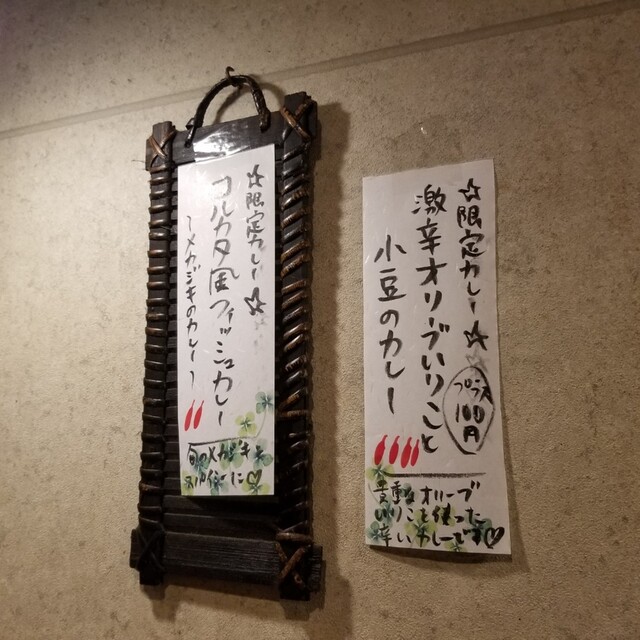 ☆限定カレー☆
コルカタ風フィッシュカレー
〜メカジキのカレー〜
旬のメカジキを
スパイシーに♡
☆限定カレー☆
プラス
100円
激辛オリーブいりこと
小豆のカレー
オリーブ
いりこを使った
辛いカレーです♡